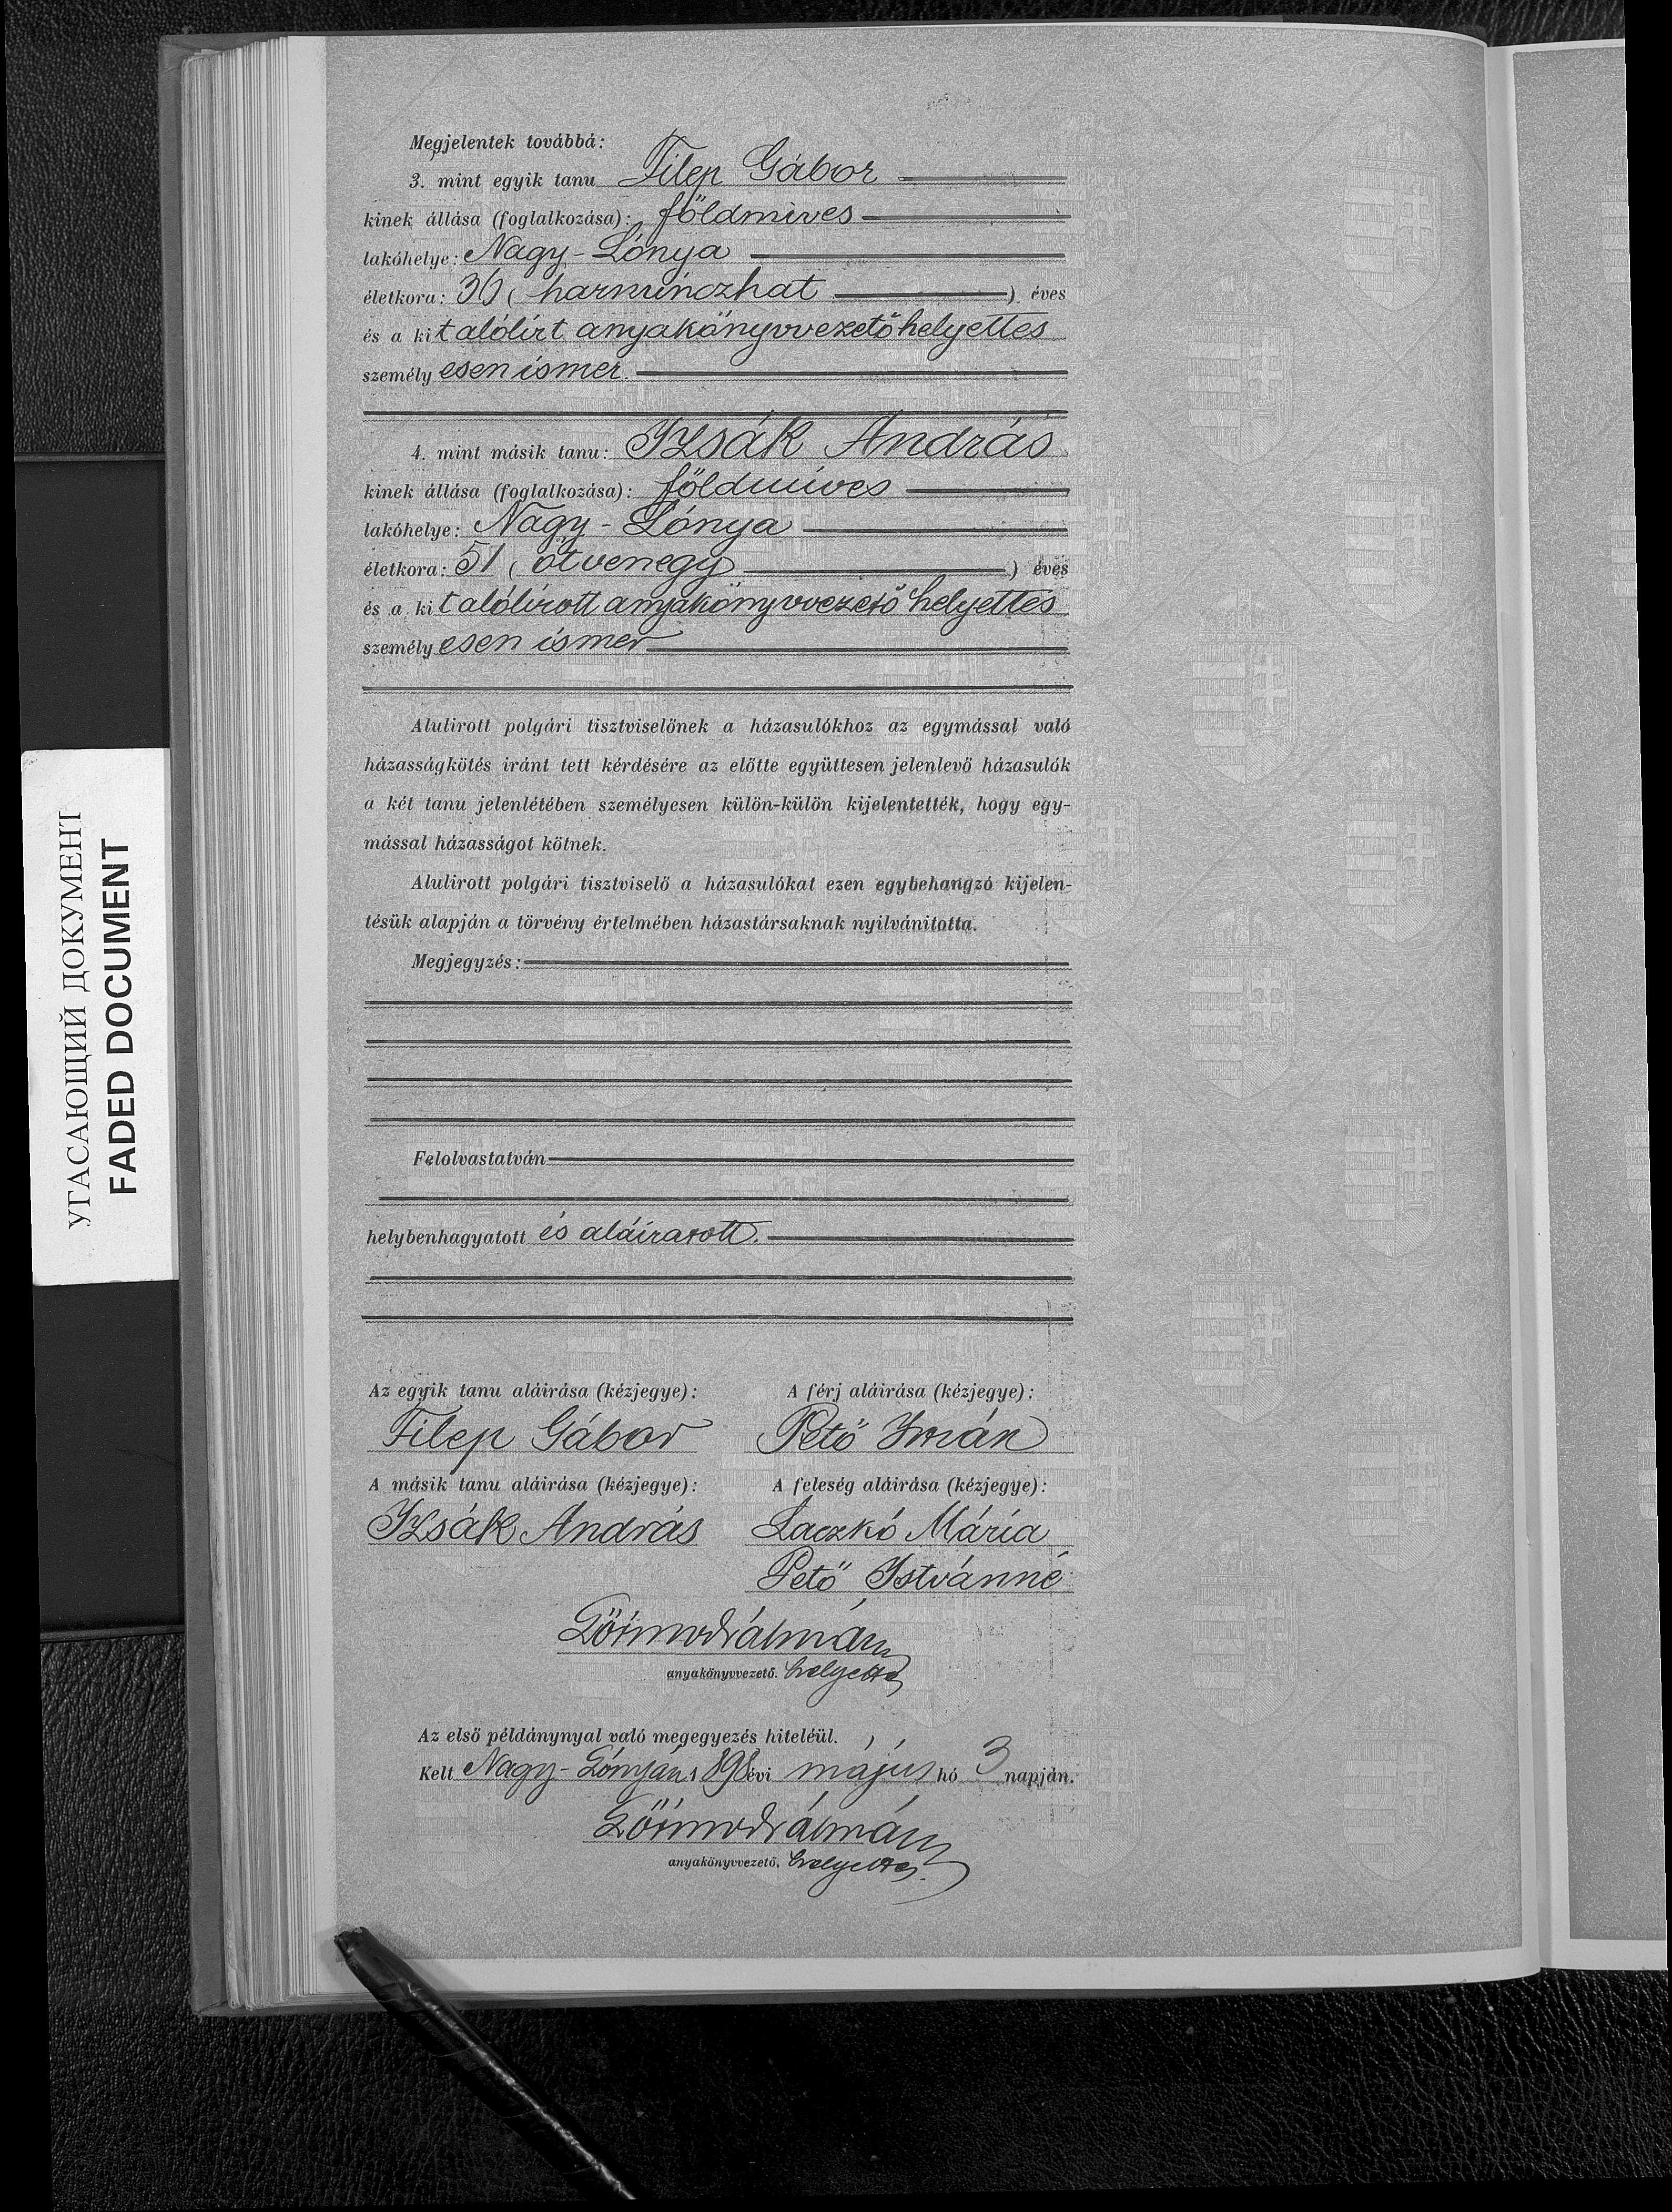 Megjelentek továbbá:
3. mint egyik tanu Filep Gábor
kinek állása (foglalkozása): földmives
lakóhelye: Nagy-Lónya
életkora: 36 (harminczhat) éves
és a kit alólirt anyakönyvvezető helyettes
személyesen ismer.
4. mint másik tanu: Izsák András
kinek állása (foglalkozása): földmives
lakóhelye: Nagy-Lónya
életkora: 51 (ötvenegy) éves
és a kit alólirott anyakönyvvezető helyettes
személyesen ismer
Alulirott polgári tisztviselőnek a házasulókhoz az egymással való
házasságkötés iránt tett kérdésére az előtte együttesen jelenlevő házasulók
a két tanu jelenlétében személyesen külön-külön kijelentették, hogy egy-
mással házasságot kötnek.
Alulirott polgári tisztviselő a házasulókat ezen egybehangzó kijelen-
tésük alapján a törvény értelmében házastársaknak nyilvánitotta.
Megjegyzés:
Felolvastatván
helybenhagyatott és aláiratott.
Az egyik tanu aláirása (kézjegye): A férj aláirása (kézjegye):
Filep Gábor Pető
A másik tanu aláirása (kézjegye): A feleség aláirása (kézjegye):
Izsák András Laczkó Mária
Pető Istvánné
anyakönyvvezető. helyettes
Az első példánynyal való megegyezés hiteléül.
Kelt Nagy-Lónyán 1898 évi május hó 3 napján.
anyakönyvvezető. helyettes.
УГАСАЮЩИЙ ДОКУМЕНТ
FADED DOCUMENT